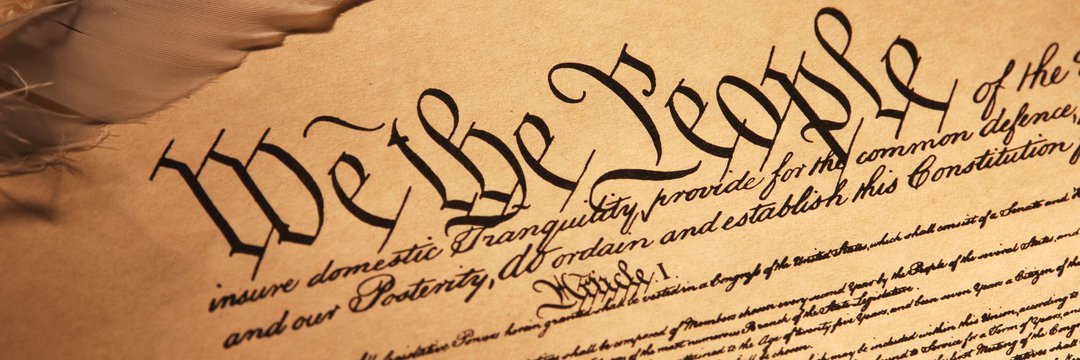 We the People of the
insure domestic Tranquility, provide for the common defence,
and our Posterity, do ordain and establish this Constitution
Article I.
Legislative Powers herein granted shall be vested in a Congress of the United States, which shall consist of a Senate and
shall be composed of Members chosen every second Year by the People of the several States, and
of the most numerous Branch of the State Legislature.
attained to the Age of twenty five Years, and been seven Years a Citizen of the
shall be chosen.
may be included within this Union, according to
to Service for a Term of Years, and
Meeting of the Congress